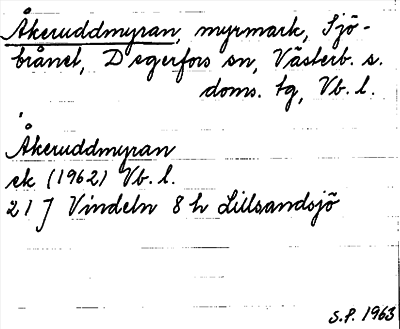 Åkeruddmyran, myrmark, Sjö-
brånet, Degerfors sn, Västerb. s.
doms. tg, Vb. l.
Åkeruddmyran
ek (1962) Vb. l.
21 J Vindeln 8 h Lillsandsjö
S.P. 1963